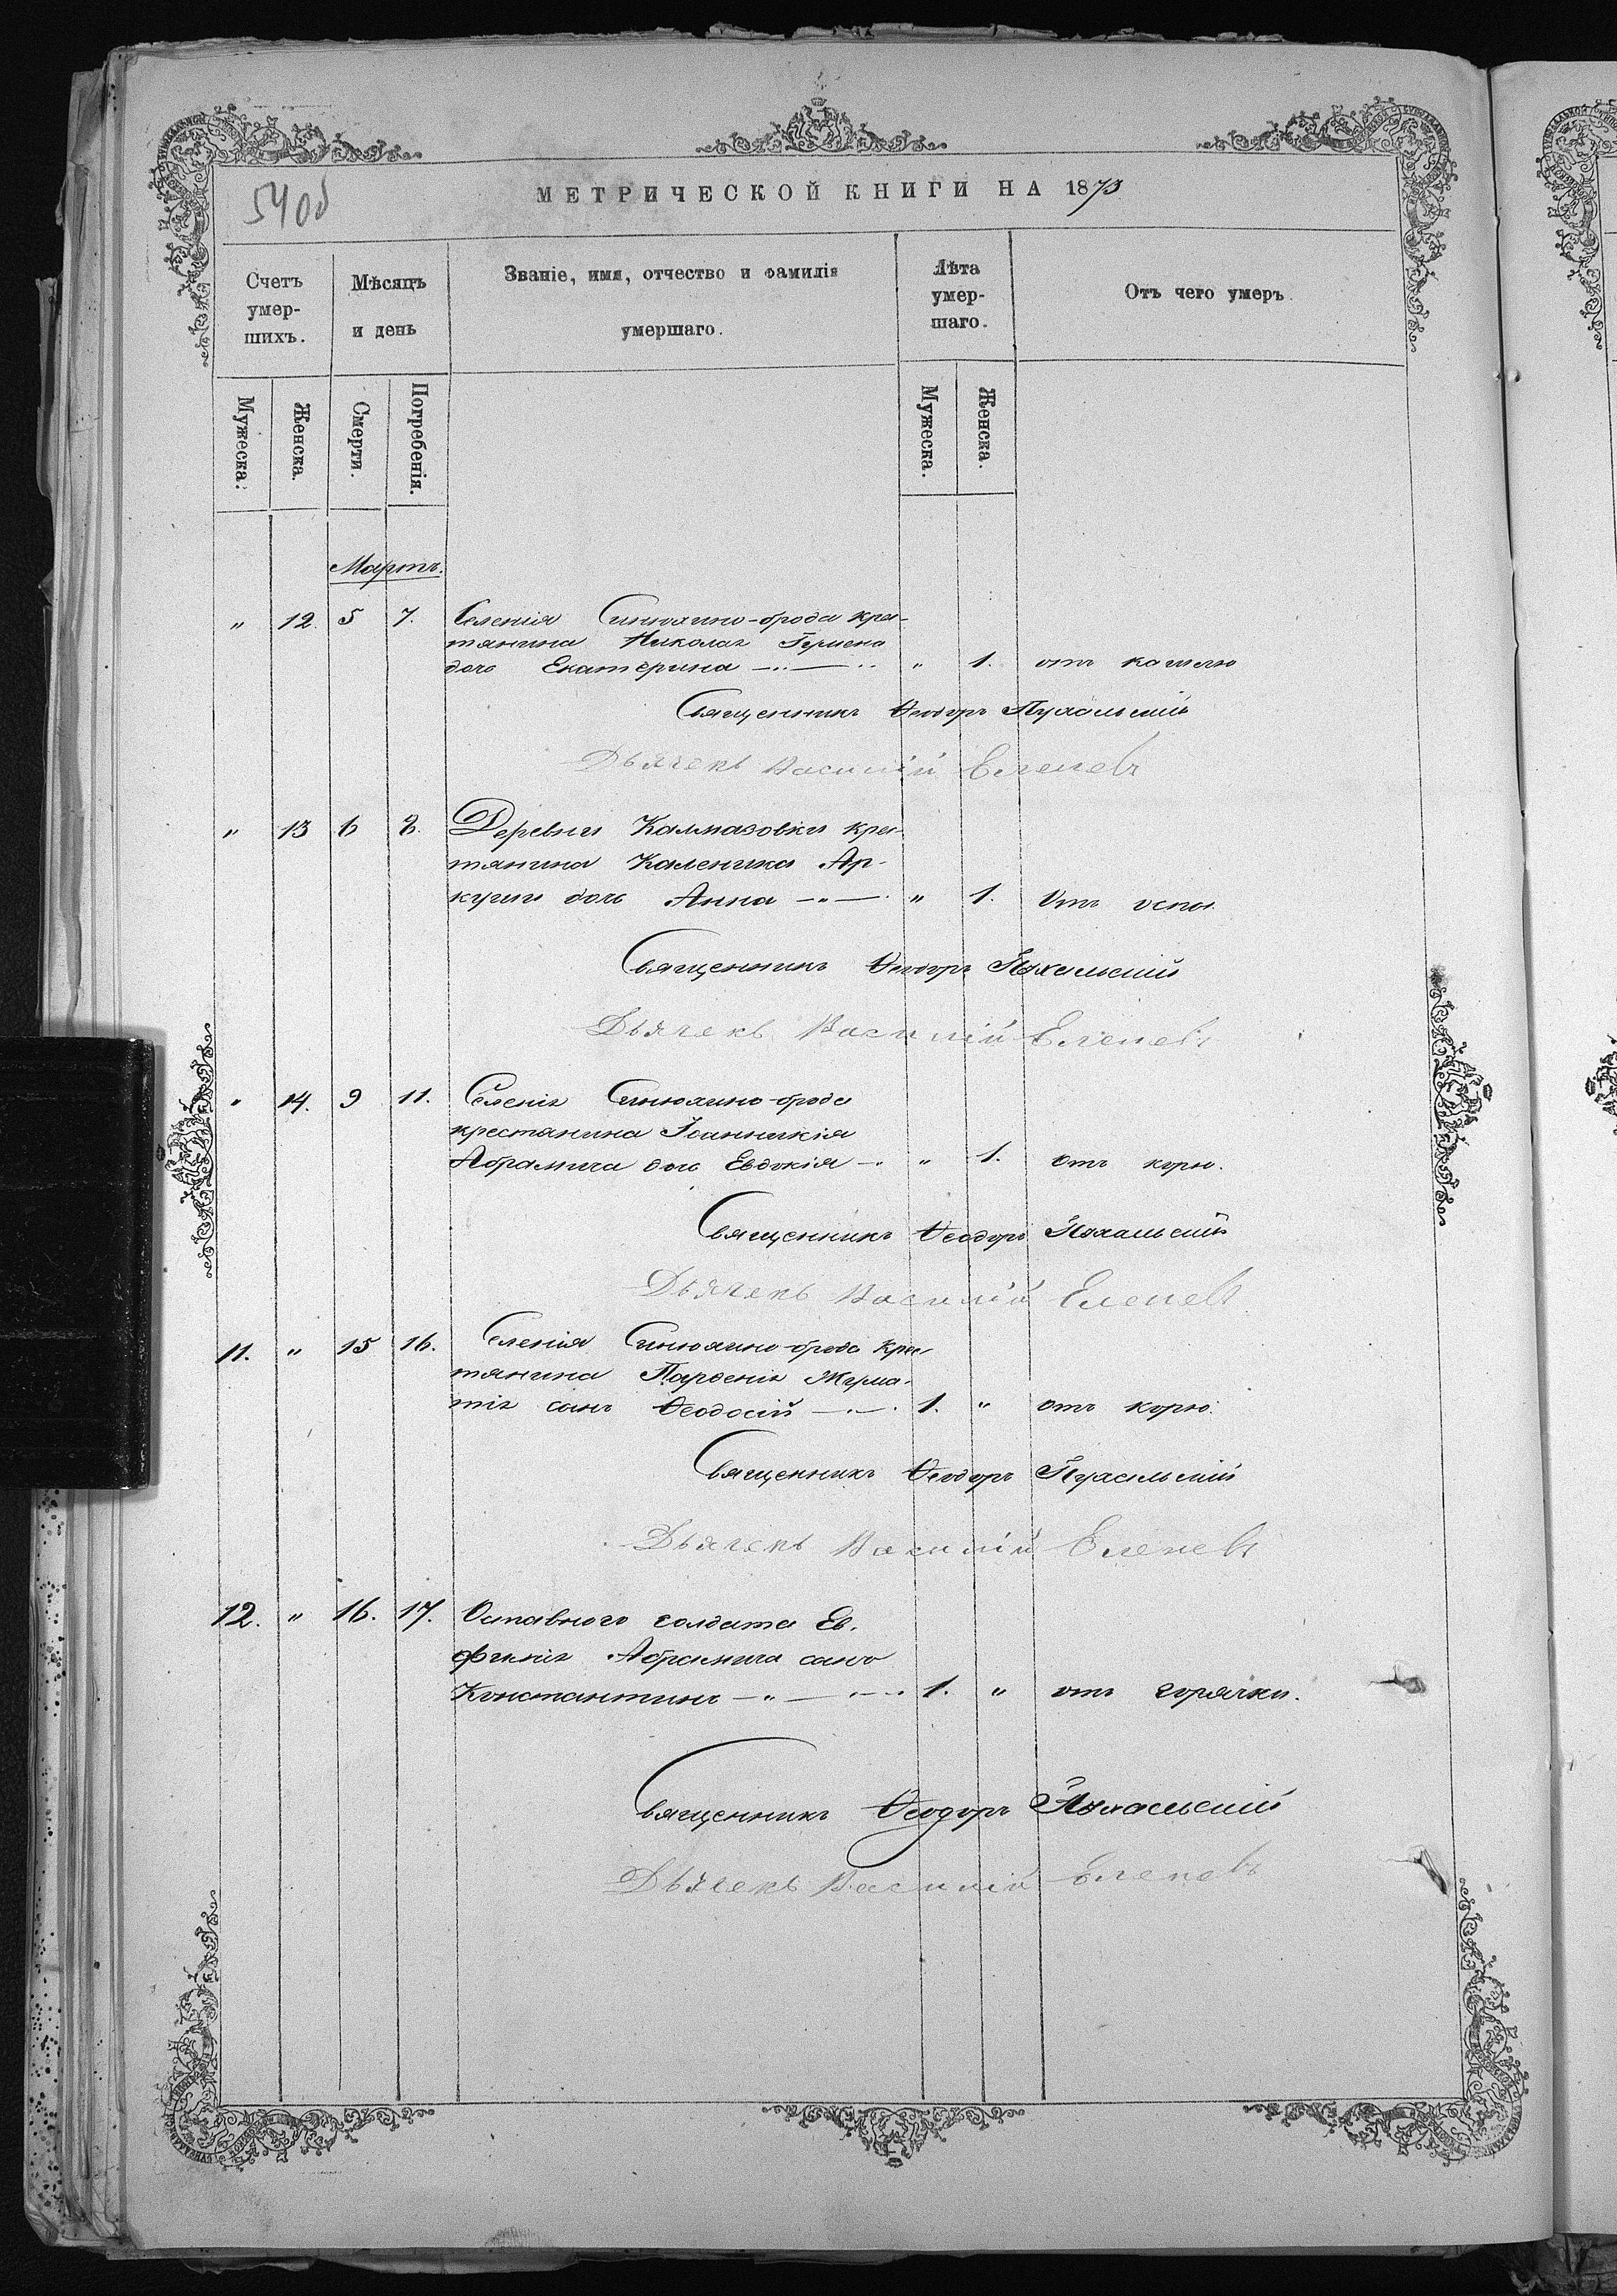 540об
МЕТРИЧЕСКОЙ КНИГИ НА 1873
Счетъ умер-шихъ.
Мѣсяцъ и день
Званіе, имя, отчество и фамилія умершаго.
Лѣта умер-шаго.
Отъ чего умеръ.
Мужеска. Женска. Смерти. Погребенія. Мужеска. Женска.
Мартъ.
" 12. 5 7. Селенія Синюхино-брода крес-
тянина Николая
дочь Екатерина " 1. отъ кашлю
Священникъ Ѳеодоръ Пухальскій
Дьячекъ Василій Еленевъ
" 13 6 8. Деревни Калмазовки крес-
тянина Каленика Ар-
дочь Анна " 1. Отъ оспы.
Священникъ Ѳеодоръ Пухальскій
Дьячекъ Василій Еленевъ
" 14. 9 11. Селенія Синюхино-брода
крестянина Іоанникія
Абрамича дочь Евдокія " 1. Отъ корю.
Священникъ Ѳеодоръ Пухальскій
Дьячекъ Василій Еленевъ
11. " 15 16. Селенія Синюхино-брода крес-
тянина Парѳенія
сынъ Ѳеодосій 1. " отъ корю.
Священникъ Ѳеодоръ Пухальскій
Дьячекъ Василій Еленевъ
12. " 16. 17. Отставного солдата Ев-
фимія Абрамича сынъ
Константинъ 1. " отъ горячки.
Священникъ Ѳеодоръ Пухальскій
Дьячекъ Василій Еленевъ